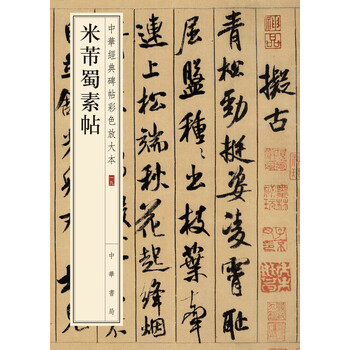 擬古
青松勁挺姿凌霄恥
屈盤種〻出枝葉牽
連上松端秋花起絳烟
中華經典碑帖彩色放大本
米芾蜀素帖
中華書局